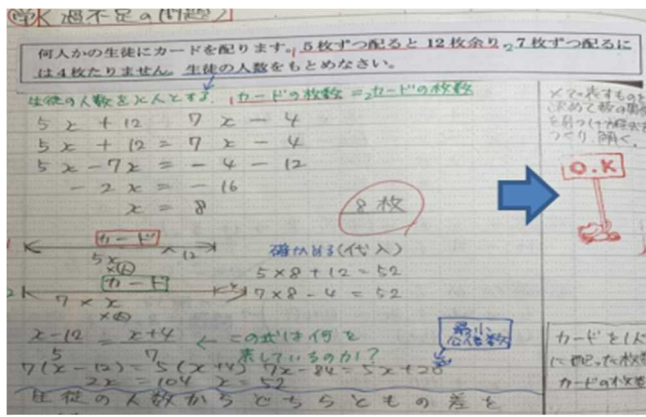 過不足の問題
何人かの生徒にカードを配ります。1 5枚ずつ配ると12枚余り、2 7枚ずつ配るに
は4枚たりません。生徒の人数をもとめなさい。
生徒の人数をx人とする。 1カードの枚数=2カードの枚数
5x+12 7x-4
5x+12=7x-4
5x-7x=-4-12
-2x=-16
x=8
8枚
O.K
カード
5x 12
確かめる(代入)
5×8+12=52
カード
7×x
7×8-4=52
x-12 x+4 ←この式は何を
5 7 表しているのか?
最小
公倍数
7(x-12)=5(x+4) 7x-84=5x+20
2x=104 x=52
生徒の人数からどちらともの差を
xで表すものを
決めて数の関係
つくり、解く。
カードを1人
に配った枚数
カードの枚数